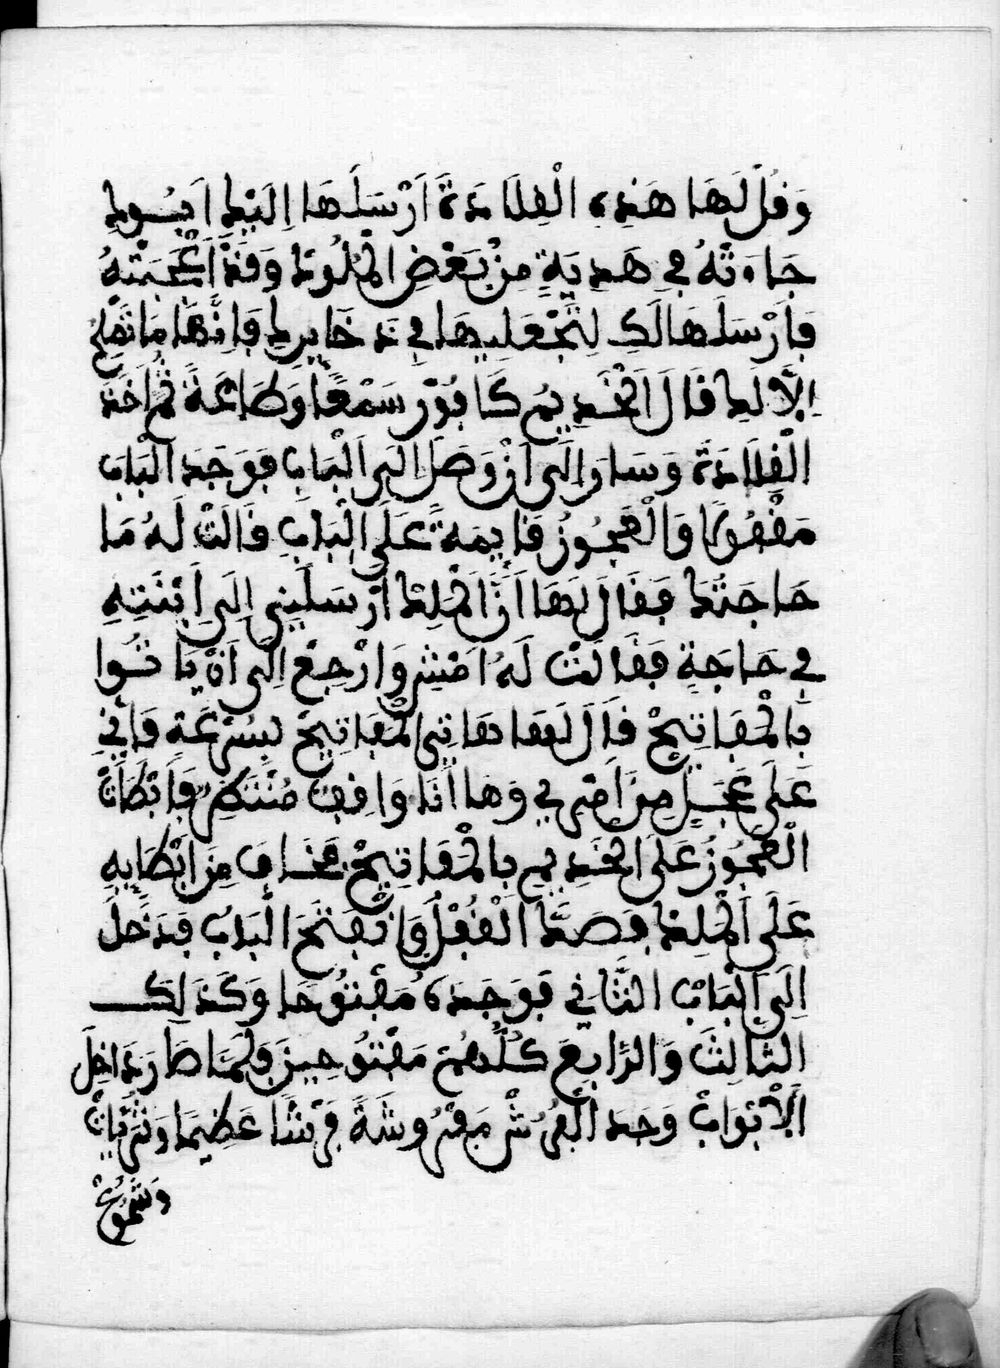 وَقُلْ لَهَا هَذِهِ الْقِلَادَةَ أَرْسَلَهَا إِلَيْكِ أَبُوكِ
جَاءَتْهُ فِي هَدِيَةٍ مِنْ بَعْضِ الْمُلُوكِ وَقَدْ أَعْجَبَتْهُ
فَأَرْسَلَهَا لَكِ لِتَجْعَلِيهَا فِي ذَخَايِرِكِ فَإِنَّهَا مَا تَصْلُحُ
إِلَّا لَكِ قَالَ الْخَدِيمُ كَافُورْ سَمْعًا وَطَاعَةً ثُمَّ أَخَذَ
الْقِلَادَةَ وَسَارَ إِلَى أَنْ وَصَلَ إِلَى الْبَابِ فَوَجَدَ الْبَابَ
مَقْفُولًا وَالْعَجُوزُ قَايِمَةً عَلَى الْبَابِ قَالَتْ لَهُ مَا
حَاجَتُكَ فَقَالَ لَهَا أَنَّ الْمَلِكَ أَرْسَلَنِي إِلَى ابْنَتِهِ
فِي حَاجَةٍ فَقَالَتْ لَهُ امْشِ وَارْجِعْ إِلَى أَنْ يَاتُوا
بِالْمَفَاتِيحْ قَالَ لَهَا هَاتِي الْمَفَاتِيحْ بِسُرْعَةٍ فَإِنِّي
عَلَى عَجَلٍ مِنْ أَمْرِي وَهَا أَنَا وَاقِفْ مُنْتَظِرْ فَأَبْطَأَتْ
الْعَجُوزُ عَلَى الْخَدِيمِ بِالْمَفَاتِيحْ فَخَافَ مِنْ إِبْطَايِهِ
عَلَى الْمَلِكِ فَصَكَّ الْقُفْلُ وَانْفَتَحَ الْبَابُ فَدَخَلَ
إِلَى الْبَابِ الثَّانِي فَوَجَدَهُ مَفْتُوحًا وَكَذَلِكَ
الثَّالِثَ وَالرَّابِعَ كُلُّهُمْ مَفْتُوحِينَ فَلَمَّا صَارَ دَاخِلَ
الْأَبْوَابْ وَجَدَ الْفُرُشْ مَفْرُوشَةً فَرْشًا عَظِيمًا وَثُرَيَّاتْ
وَشُمُوعْ